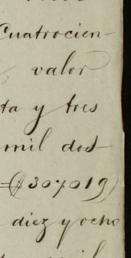 Cuatrocien-
valor
ta y tres
mil dos
=($307019)
diez y ocho